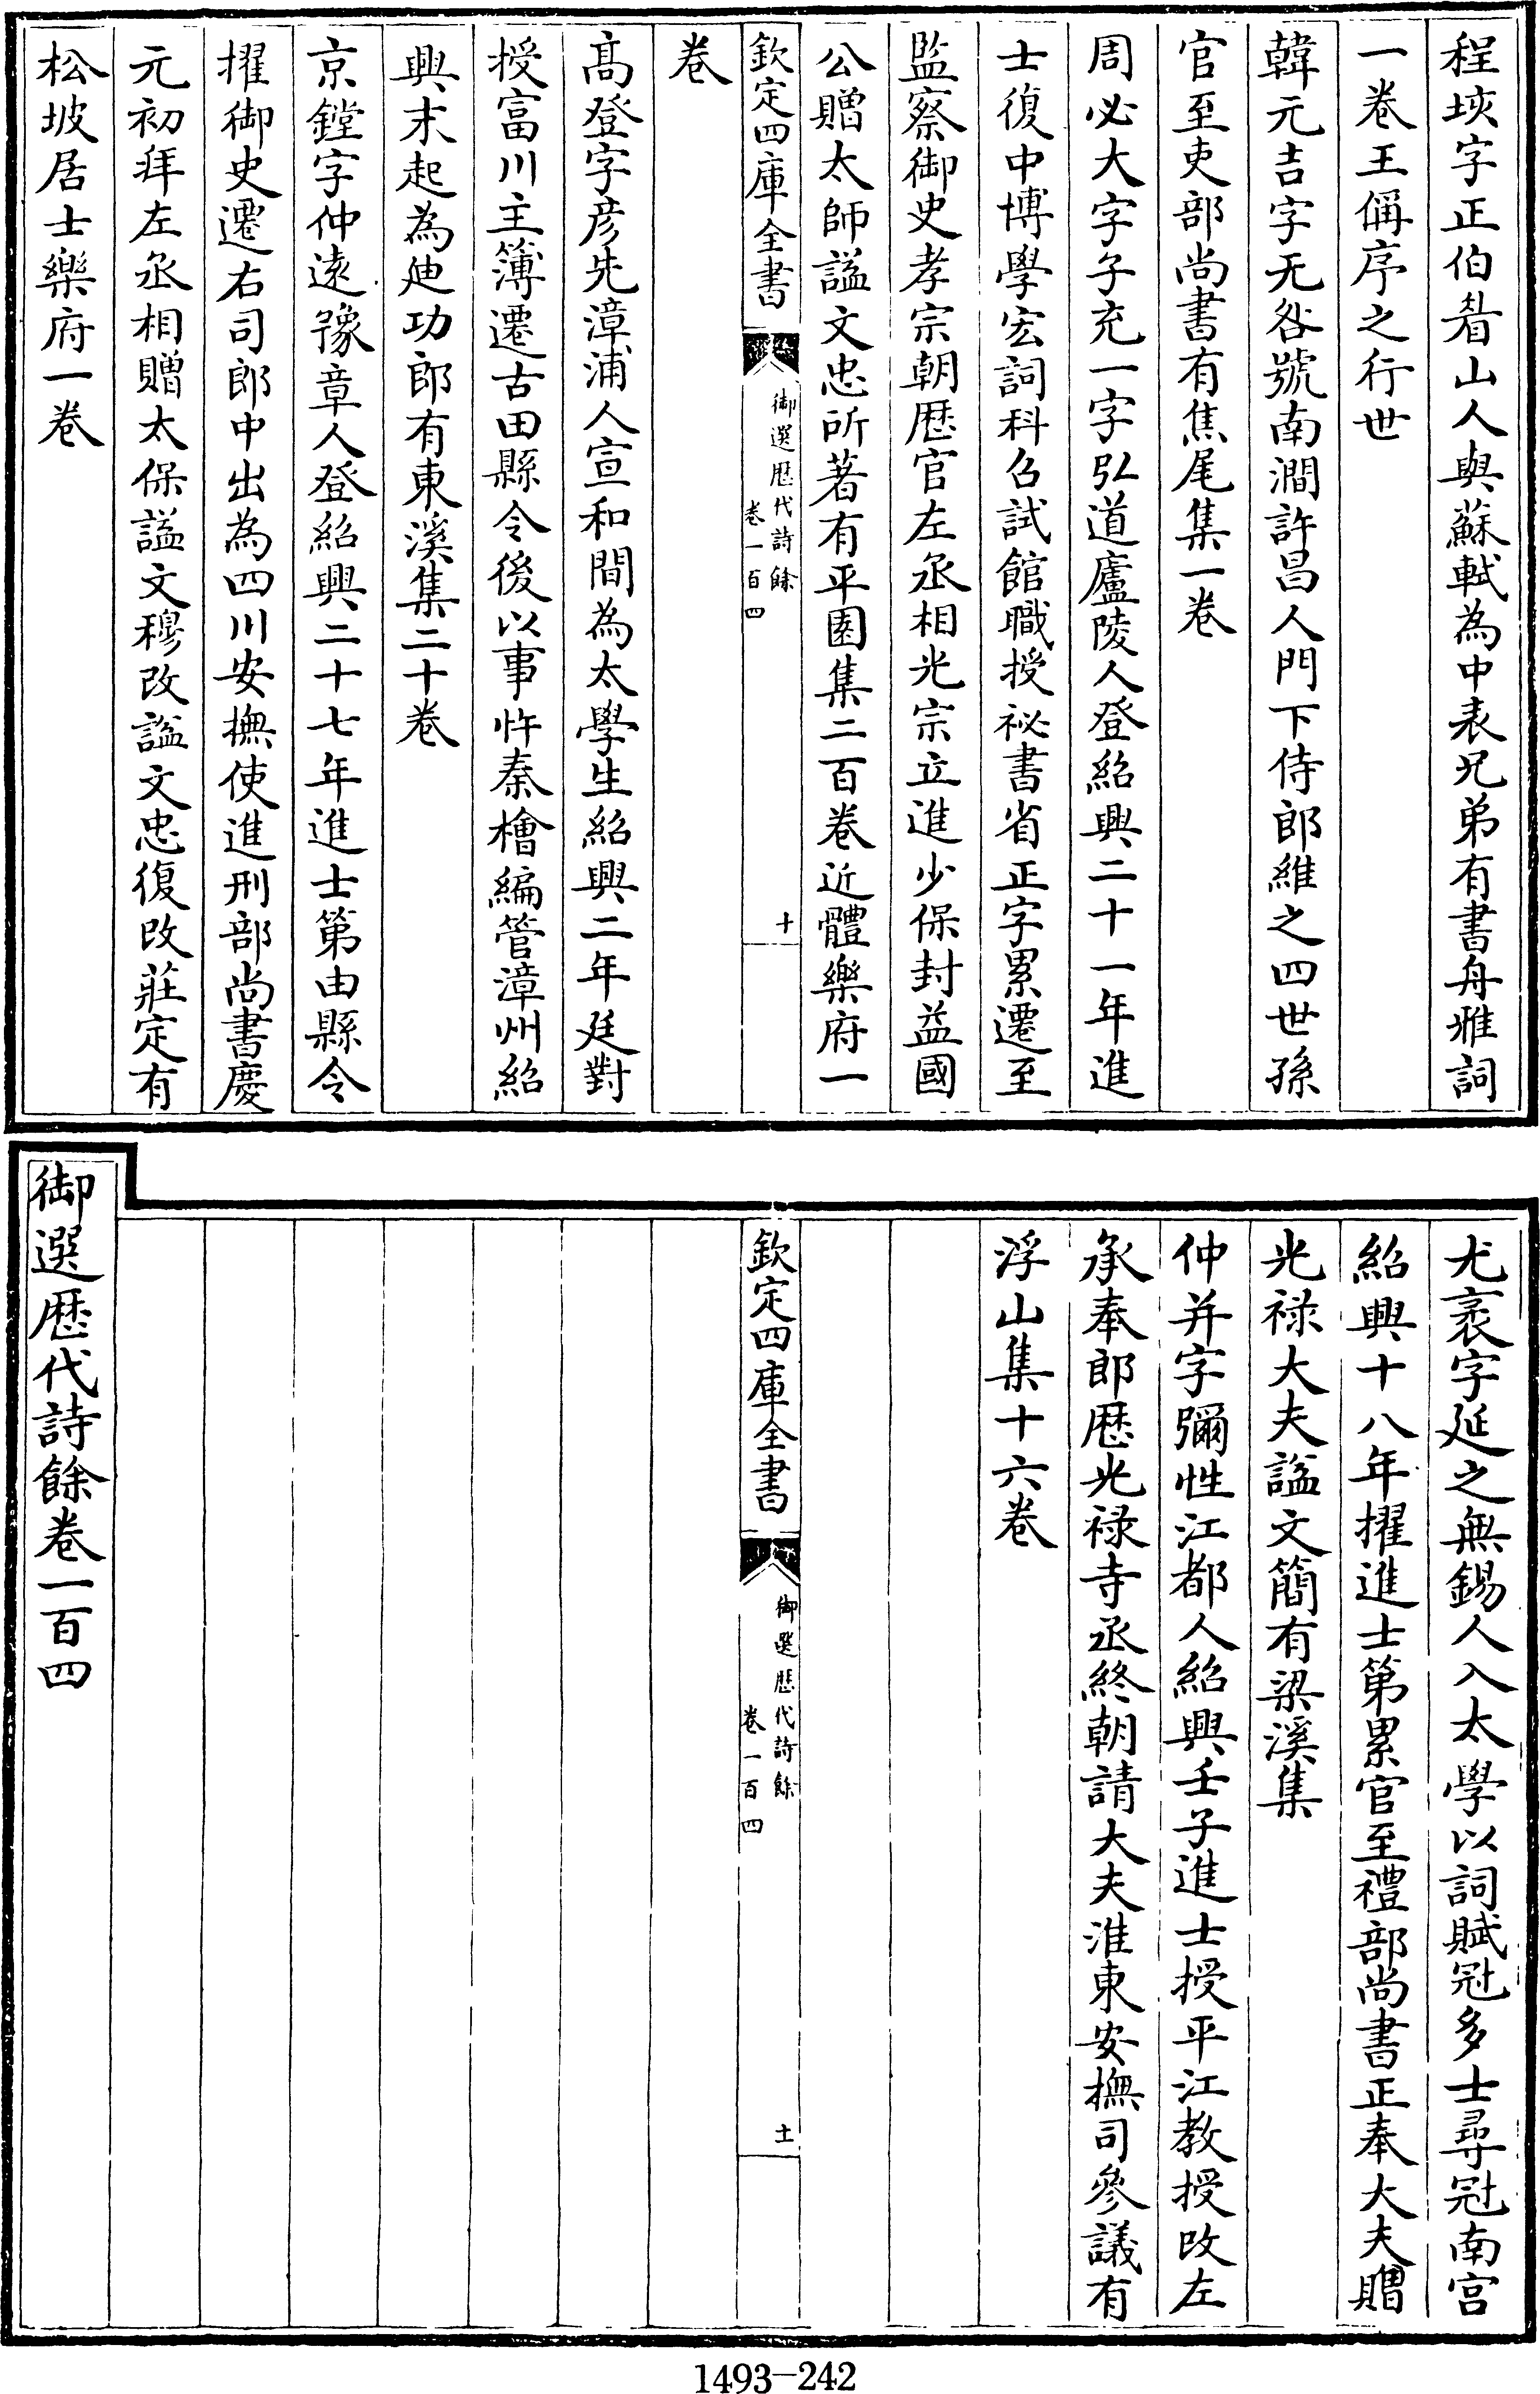 程垓字正伯眉山人與蘇軾為中表兄弟有書舟雅詞
一卷王偁序之行世
韓元吉字无咎號南澗許昌人門下侍郎維之四世孫
官至吏部尚書有焦尾集一卷
周必大字子充一字弘道廬陵人登紹興二十一年進
士復中博學宏詞科召試館職授祕書省正字累遷至
監察御史孝宗朝歴官左丞相光宗立進少保封益國
公贈太師諡文忠所著有平園集二百卷近體樂府一
欽定四庫全書
御選歴代詩餘
卷一百四
十
卷
髙登字彦先漳浦人宣和間為太學生紹興二年廷對
授富川主簿遷古田縣令後以事忤秦檜編管漳州紹
興末起為廸功郎有東溪集二十卷
京鏜字仲逺豫章人登紹興二十七年進士第由縣令
擢御史遷右司郎中出為四川安撫使進刑部尚書慶
元初拜左丞相贈太保諡文穆改諡文忠復改莊定有
松坡居士樂府一卷
尤袤字延之無錫人入太學以詞賦冠多士尋冠南宫
紹興十八年擢進士第累官至禮部尚書正奉大夫贈
光祿大夫諡文簡有梁溪集
仲并字彌性江都人紹興壬子進士授平江教授改左
承奉郎歴光祿寺丞終朝請大夫淮東安撫司參議有
浮山集十六卷
欽定四庫全書
御選歴代詩餘
卷一百四
十一
御選歴代詩餘卷一百四
1493-242